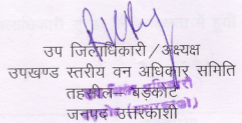 उप जिलाधिकारी / अध्यक्ष
उपखण्ड स्तरीय वन अधिकार समिति
तहसील- बड़कोट
जनपद उत्तरकाशी